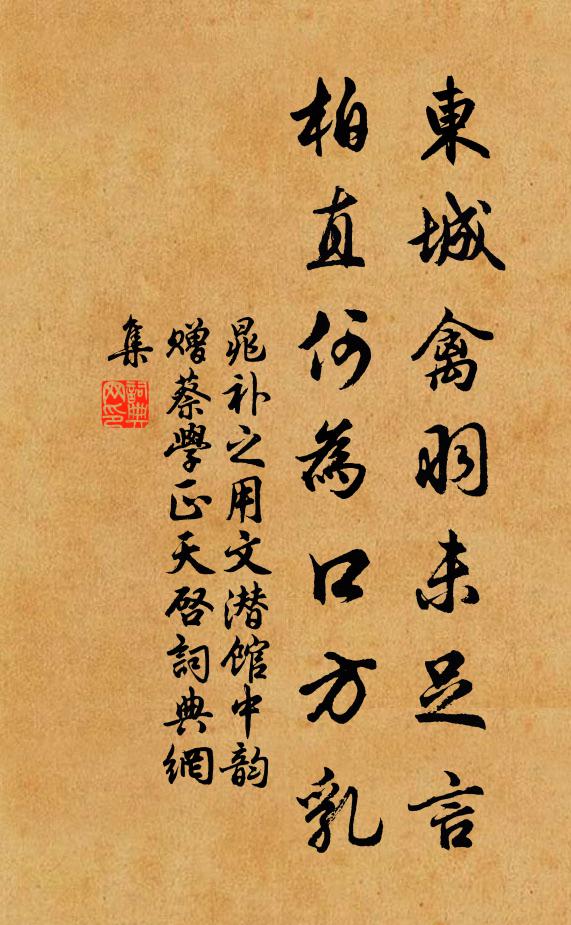 東城禽羽未足言
柏直何為口方乳
晁补之用文潜館中韵
贈蔡學正天啓詞典網
集
詞典網印